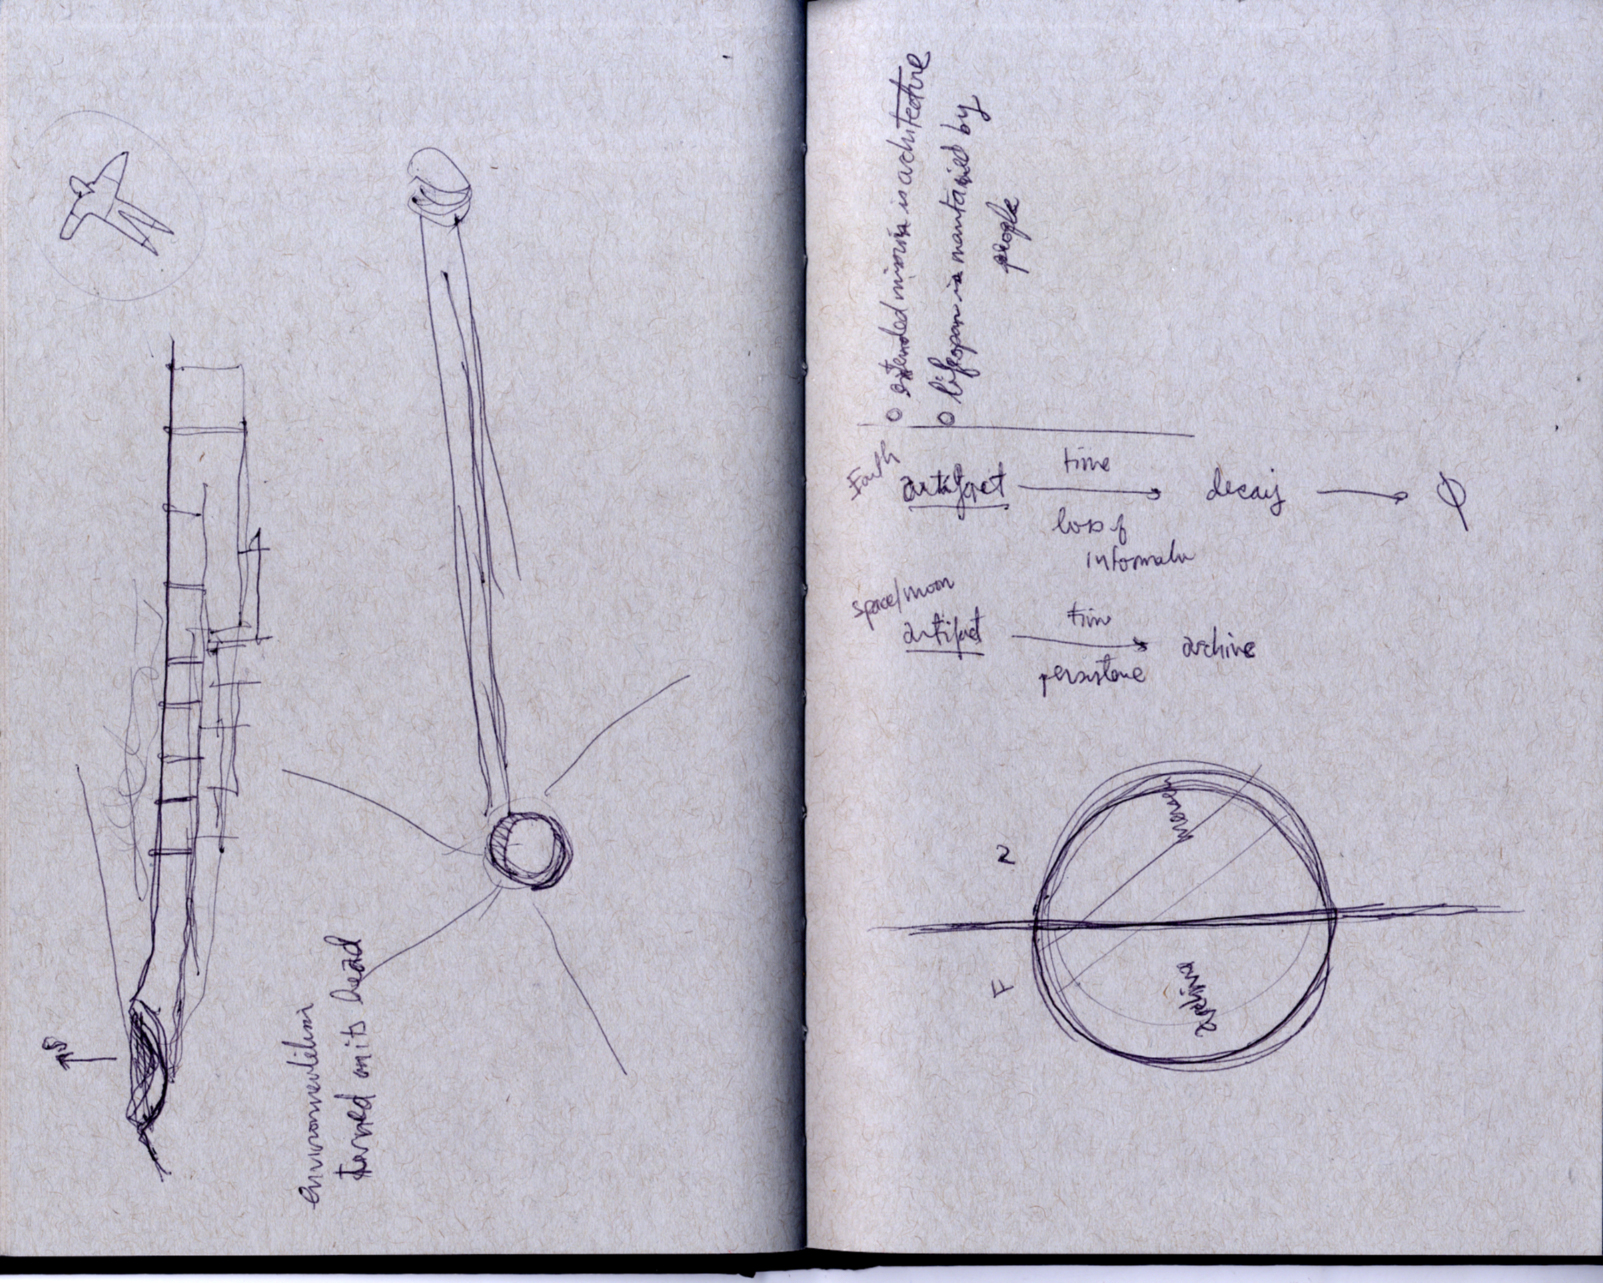 environmentalism
turned on its head
o extended mission is architecture
o lifespan is maintained by
people
Earth
artifact
time
decay
Ø
loss of
space/moon
artifact
time
archive
persistance
2
archive
F